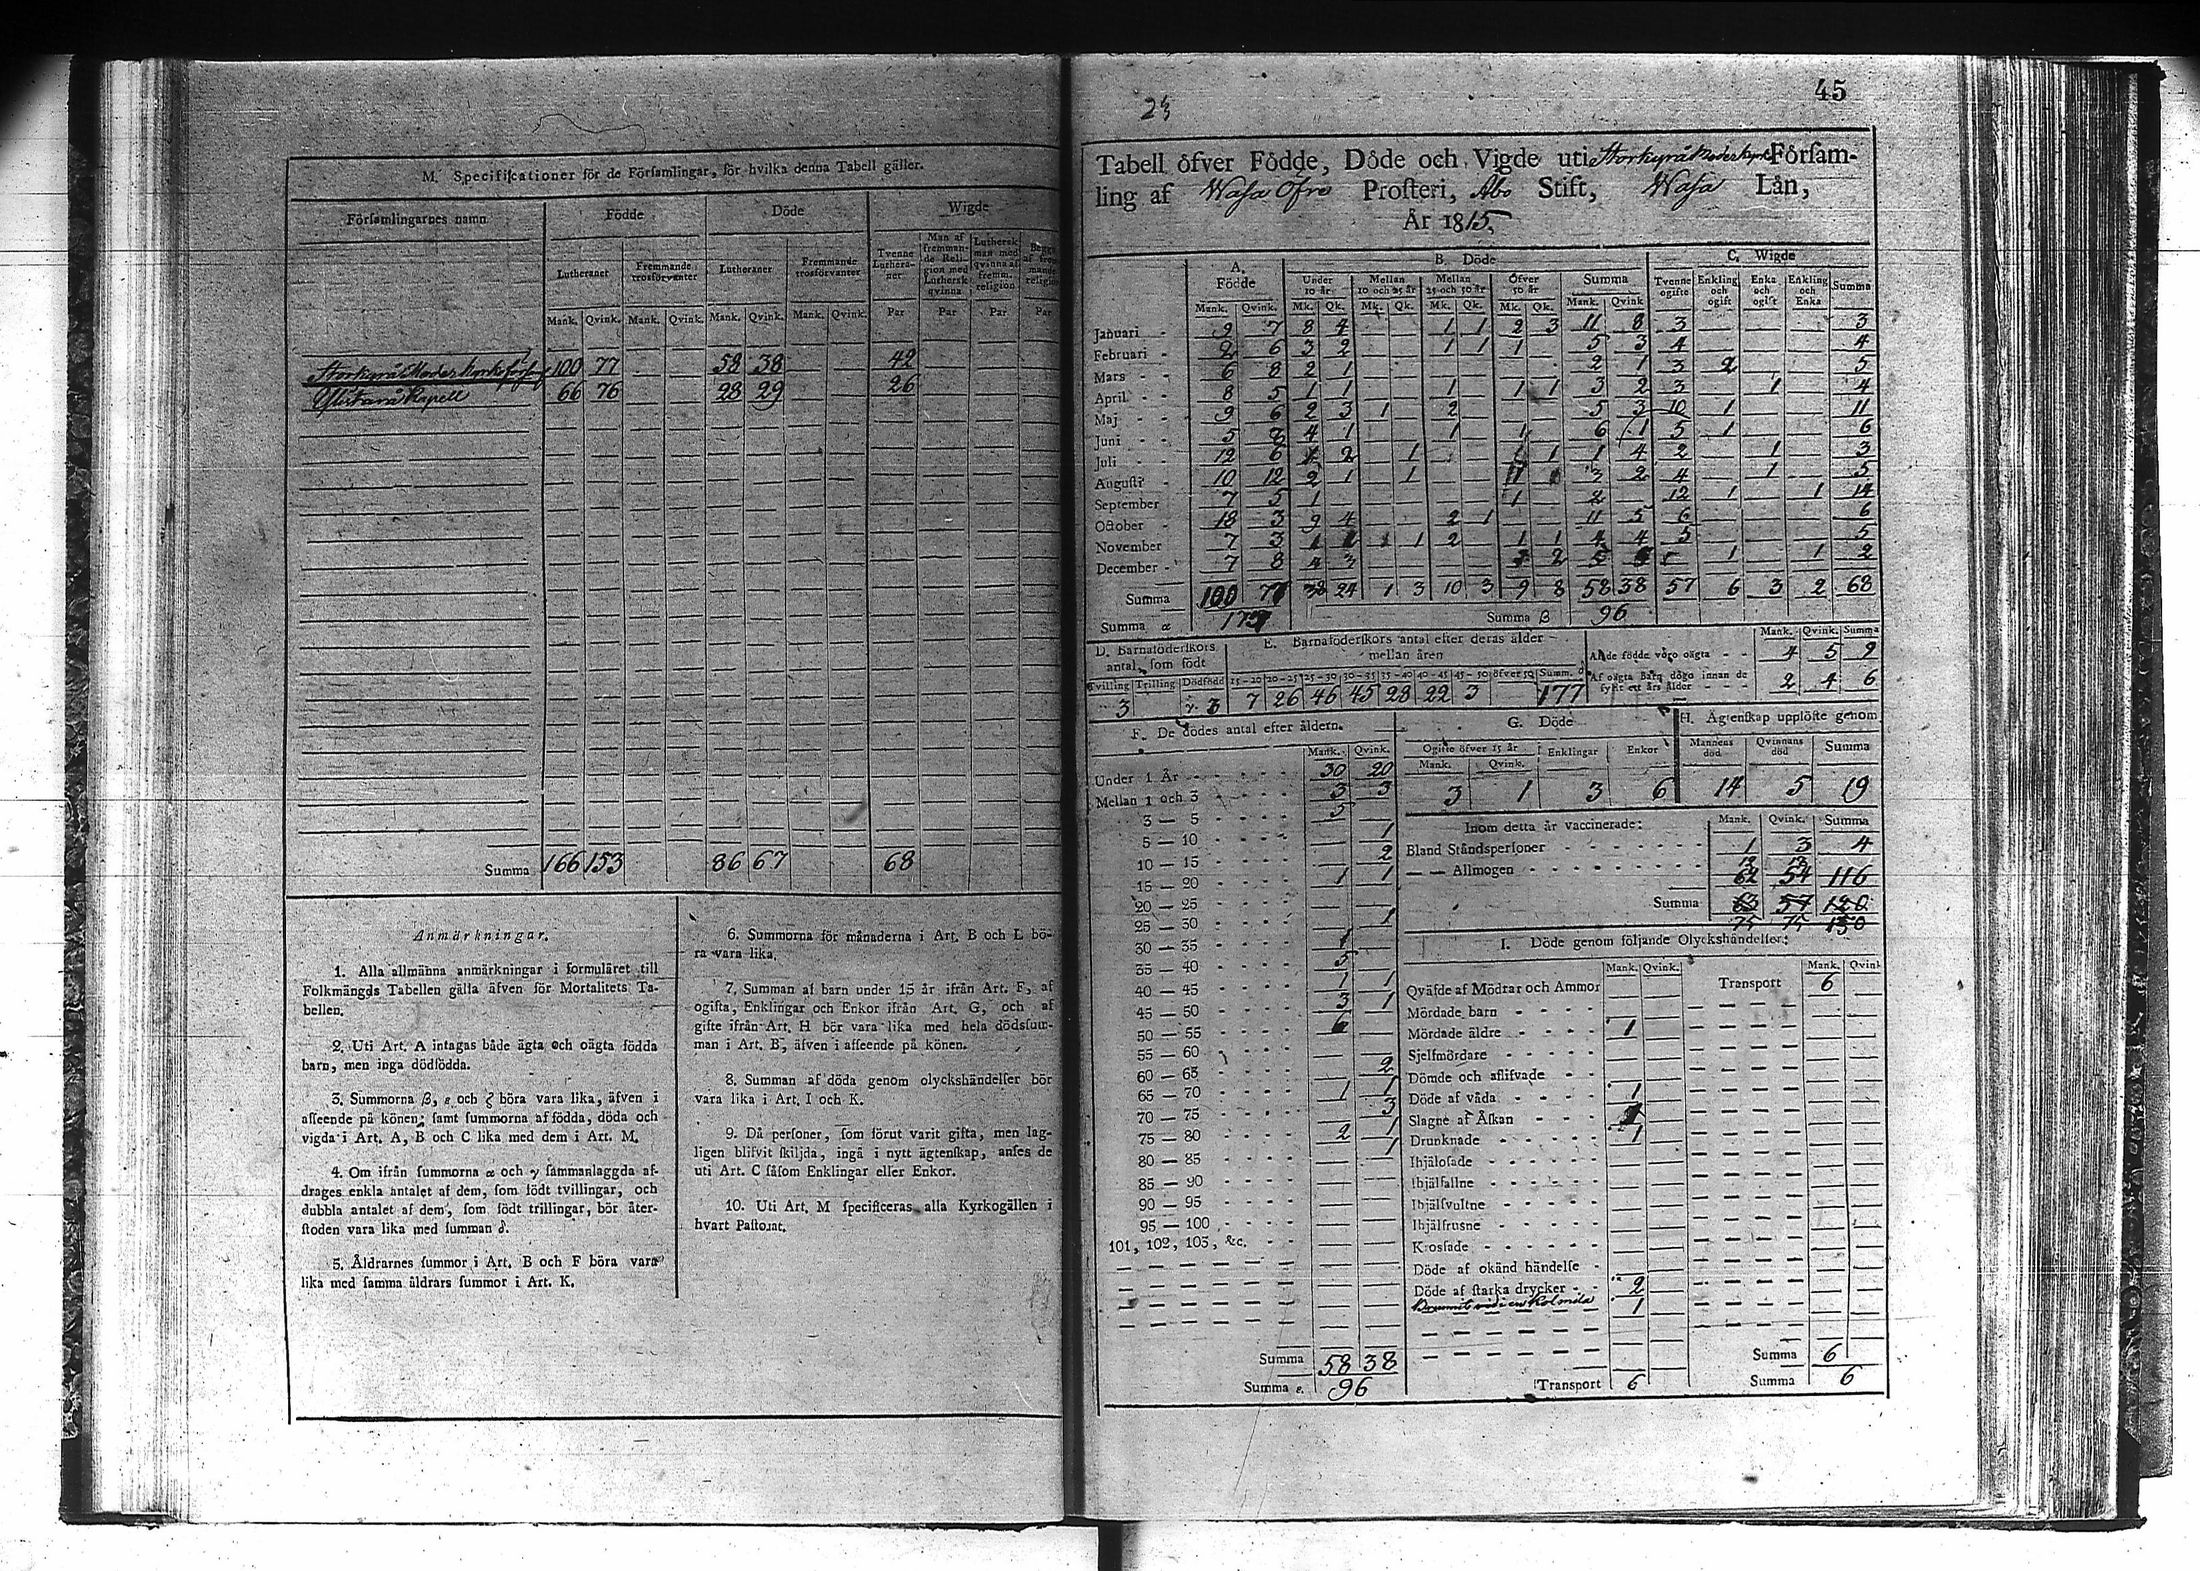 M. Specificationer för de Församlingar, för hvilka denna Tabell gäller.
Församlingarnes namn | Födde | Döde | Wigde
Lutheraner | Fremmande trosförvanter | Lutheraner | Fremmande trosförvanter | Tvenne Lutheraner | Man af fremmande Religion med Luthersk qvinna | Luthersk man med qvinna af fremm. religion
Mank. Qvink. Mank. Qvink. Mank. Qvink. Mank. Qvink. Par Par Par Par
Storkyrå Moderkyrkoförs 100 77 58 38 42
Ylistarå Kapell 66 76 28 29 26
Summa 166 153 86 67 68
Anmärkningar.
1. Alla allmänna anmärkningar i formuläret till
Folkmängds Tabellen gälla äfven för Mortalitets Ta-
bellen.
2. Uti Art. A intagas både ägta och oägta födda
barn, men inga dödfödda.
3. Summorna β, ε och ζ böra vara lika, äfven i
afseende på könen; samt summorna af födda, döda och
vigda i Art. A, B och C lika med dem i Art. M.
4. Om ifrån summorna α och γ sammanlaggda af-
drages enkla antalet af dem, som födt tvillingar, och
dubbla antalet af dem, som födt trillingar, bör åter-
stoden vara lika med summan δ.
5. Åldrarnes summor i Art. B och F böra vara
lika med samma åldrars summor i Art. K.
6. Summorna för månaderna i Art. B och L bö-
ra vara lika.
7. Summan af barn under 15 år ifrån Art. F, af
ogifta, Enklingar och Enkor ifrån Art. G, och af
gifte ifrån Art. H bör vara lika med hela dödsum-
man i Art. B, äfven i afseende på könen.
8. Summan af döda genom olyckshändelser bör
vara lika i Art. I och K.
9. Då personer, som förut varit gifta, men lag-
ligen blifvit skiljda, ingå i nytt ägtenskap, anses de
uti Art. C såsom Enklingar eller Enkor.
10. Uti Art. M specificeras alla Kyrkogällen i
hvart Pastorat.
45
Tabell öfver Födde, Döde och Vigde uti Storkyrå Moderkyrk Försam-
ling af Wasa Öfre Prosteri, Åbo Stift, Wasa Län,
År 1815.
A. Födde | B. Döde | C. Wigde
Under 10 år | Mellan 10 och 25 år | Mellan 25 och 50 år | Öfver 50 år | Summa | Tvenne ogifte | Enkling och ogift | Enka och ogift | Enkling och Enka | Summa
Mank. Qvink. Mk. Qk. Mk. Qk. Mk. Qk. Mk. Qk. Mank. Qvink
Januari 9 7 8 4 1 1 2 3 11 8 3 3
Februari 2 6 3 2 1 1 1 5 3 4 4
Mars 6 8 2 1 2 1 3 2 5
April 8 5 1 1 1 1 1 3 2 3 1 4
Maj 9 6 2 3 1 2 5 3 10 1 11
Juni 5 8 4 1 1 1 6 1 5 1 6
Juli 12 6 2 1 1 1 1 4 2 1 3
Augusti 10 12 2 1 1 3 2 4 1 5
September 7 5 1 1 2 12 1 1 14
October 18 3 9 4 2 1 11 5 6 6
November 7 3 1 1 1 1 2 1 1 4 4 5 5
December 7 8 4 3 2 5 1 1 2
Summa 100 77 38 24 1 3 10 3 9 8 58 38 57 6 3 2 68
Summa α 177 Summa β 96
D. Barnaföderskors antal, som födt
Tvilling Trilling Dödfödd
3 γ. 3
E. Barnaföderskors antal efter deras ålder mellan åren
15-20 20-25 25-30 30-35 35-40 40-45 45-50 öfver 50 Summ. δ
7 26 46 45 28 22 3 177
Mank. Qvink. Summa
Af de födde voro oägta 4 5 9
Af oägta Barn dogo innan de fyllt ett års ålder 2 4 6
F. De dödes antal efter åldern.
Mank. Qvink.
Under 1 År 30 20
Mellan 1 och 3 3 3
3 — 5 5
5 — 10 1
10 — 15 2
15 — 20 1 1
20 — 25
25 — 30 1
30 — 35 1
35 — 40 5
40 — 45 1 1
45 — 50 3 1
50 — 55 6
55 — 60
60 — 65 2
65 — 70 1 1
70 — 75 3
75 — 80 2 1
80 — 85 1
85 — 90
90 — 95
95 — 100
101, 102, 103, &c.
Summa 58 38
Summa ε. 96
G. Döde
Ogifte öfver 15 år | Enklingar | Enkor
Mank. Qvink.
3 1 3 6
H. Ägtenskap upplöste genom
Mannens död | Qvinnans död | Summa
14 5 19
Inom detta år vaccinerade: Mank. Qvink. Summa
Bland Ståndspersoner 1 3 4
12 18
— — Allmogen 62 54 116
Summa 63 57 120
75 75 150
I. Döde genom följande Olyckshändelser:
Mank. Qvink. Mank. Qvink
Qväfde af Mödrar och Ammor Transport 6
Mördade barn
Mördade äldre 1
Sjelfmördare
Dömde och aflifvade
Döde af våda 1
Slagne af Åskan
Drunknade 1
Ihjälosade
Ihjälfallne
Ihjälsvultne
Ihjälfrusne
Krossade
Döde af okänd händelse
Döde af starka drycker 2
1
Summa 6
Transport 6 Summa 6